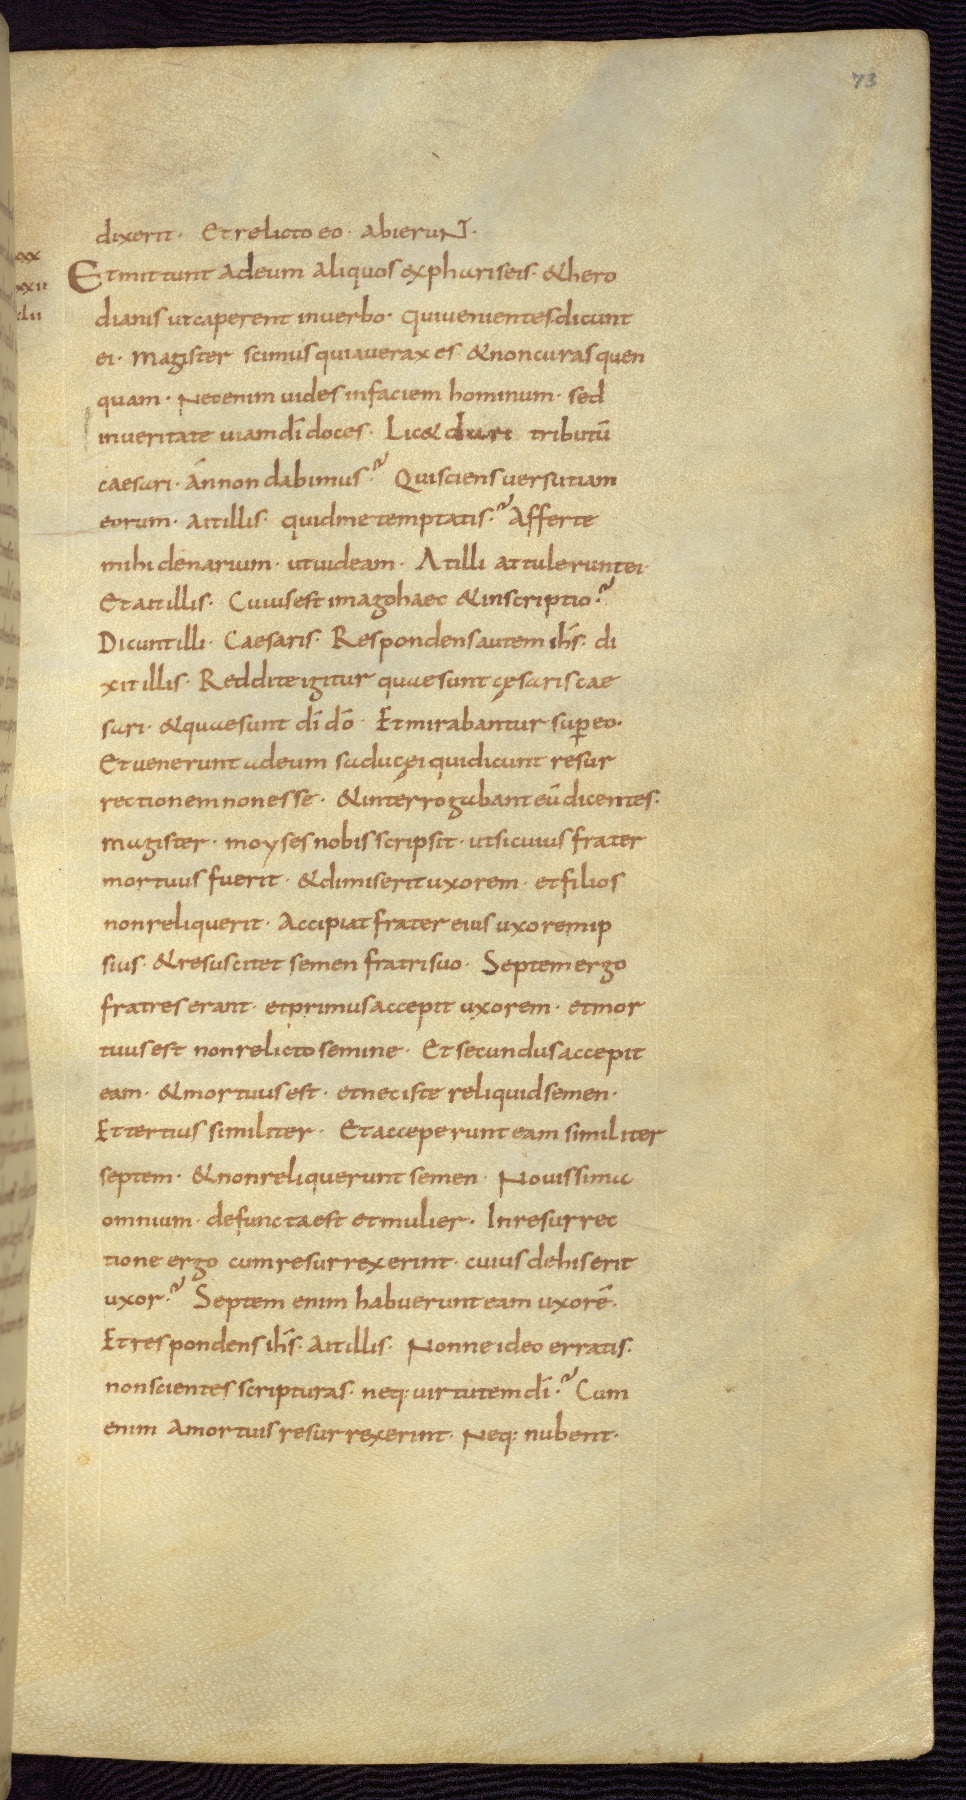 73
dixerit · Et relicto eo · abieruNT ·
xxx
Et mittunt ad eum aliquos ex phariseis · & hero
xxii
dianis ut caperent in verbo · qui uenientes dicunt
clii
ei · magister scimus quia uerax es · & non curas quen
quam · Nec enim uides in faciem hominum · sed
in ueritate uiam dī doces · Lic& dari tributū
caesari · án non dabimus ? Qui sciens versutiam
eorum · ait illis · quid me temptatis ? Afferte
mihi denarium · ut uideam · At illi attulerunt ei ·
Et ait illis · Cuius est imago haec & inscriptio ?
Dicunt illi · Caesaris · Respondens autem ihs̄ · di
xit illis · Reddite igitur quae sunt cęsaris cae
sari · & quae sunt dī dō · Et mirabantur sup̱ eo ·
Et uenerunt ad eum saducęi qui dicunt resur
rectionem non esse · & interrogabant eū dicentes ·
magister · moyses nobis scripsit · ut si cuius frater
mortuus fuerit · & dimiserit uxorem · et filios
non reliquerit · Accipiat frater eius uxorem ip
sius · & resuscitet semen fratri suo · Septem ergo
fratres erant · et primus accepit uxorem · et mor
tuus est non relicto semine · Et secundus accepit
eam · & mortuus est · et nec iste reliquid semen ·
Et tertius similiter · Et acceperunt eam similiter
septem · & non reliquerunt semen · Nouissima
omnium · defuncta est et mulier · In resurrec
tione ergo cum resurrexerint · cuius de his erit
uxor ? Septem enim habuerunt eam uxorē ·
Et respondens ihs̄ · ait illis · Nonne ideo erratis ·
non scientes scripturas · neq: uirtutem dī ? Cum
enim a mortuis resurrexerint · Neq: nubent ·